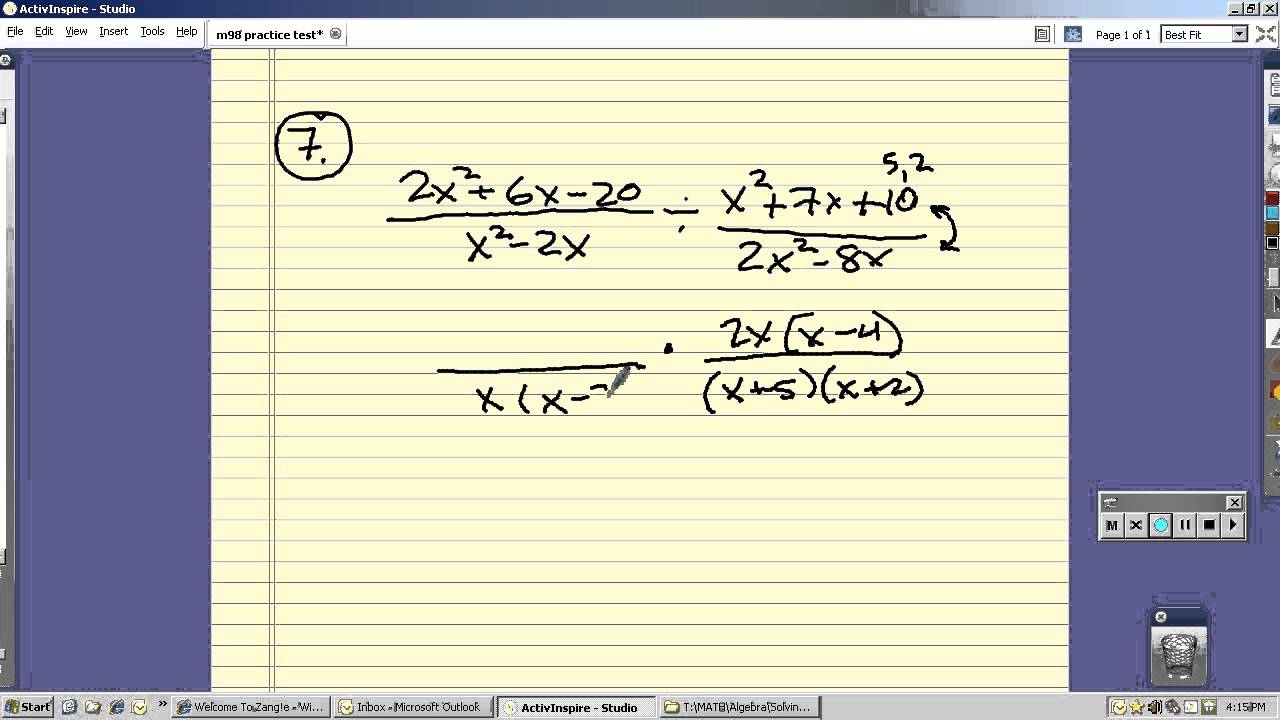 ActivInspire - Studio
File Edit View Insert Tools Help
m98 practice test*
Page 1 of 1
Best Fit
7.
5,2
2x² + 6x - 20 ÷ x² + 7x + 10
x² - 2x 2x² - 8x
· 2x(x-4)
x(x- (x+5)(x+2)
M
Start
Welcome To Zangle - Wi...
Inbox - Microsoft Outlook
ActivInspire - Studio
T:\MATB\Algebra\Solvin...
4:15 PM